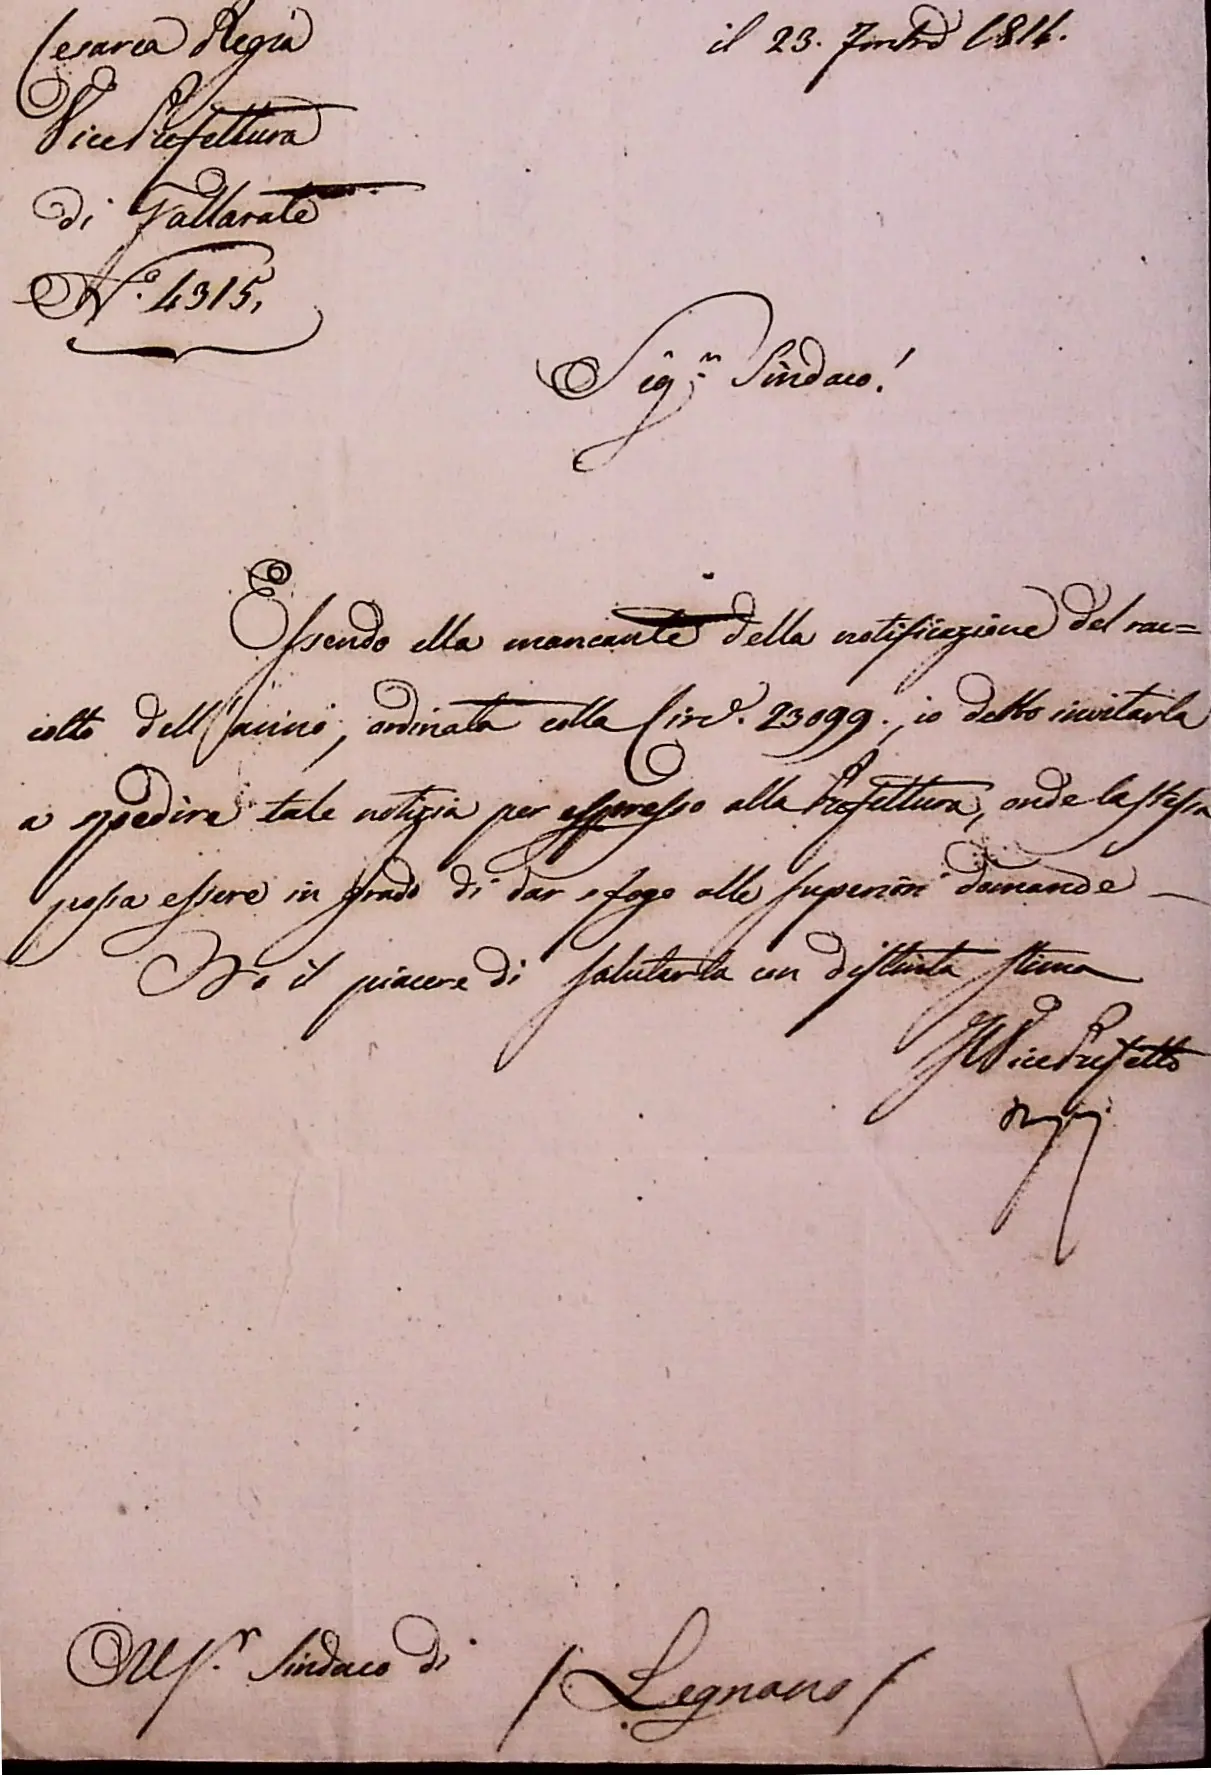 Cesarea Regia
il 23. 7mbre 1814.
Vice Prefettura
di Gallarate
N.° 4315.
Sig.r Sindaco!
Essendo ella mancante della notificazione del rac=
colto dell'anno, ordinata colla Circ.e 23099., io debbo invitarla
a spedire tale notizia per espresso alla Prefettura, onde la stessa
possa essere in grado di dar sfogo alle superiori domande
Ho il piacere di salutarla con distinta stima
Il Vice Prefetto
Al S.r Sindaco di
/ Legnano /